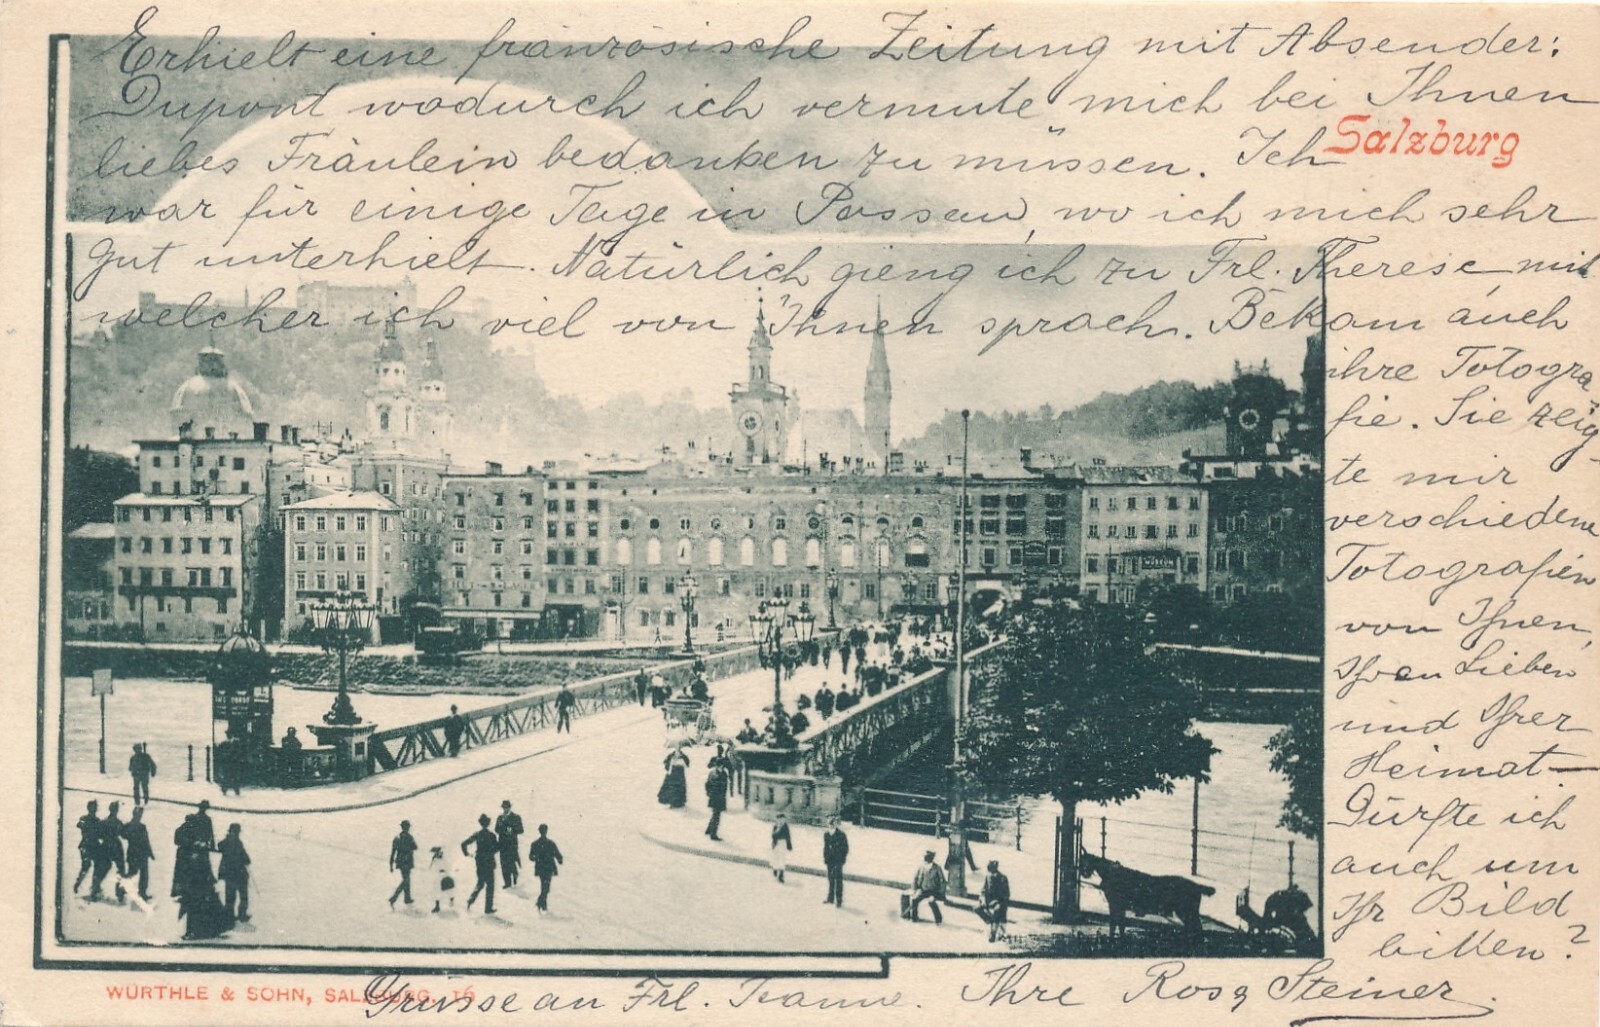 Erhielt eine französische Zeitung mit Absender:
Dupont wodurch ich vermute mich bei Ihnen
liebes Fräulein bedanken zu müssen. Ich
Salzburg
war für einige Tage in Passau, wo ich mich sehr
gut unterhielt. Natürlich gieng ich zu Frl. Therese mit
welcher ich viel von Ihnen sprach. Bekam auch
ihre Fotogra
fie. Sie zeig-
te mir
verschiedene
Fotografien
von Ihnen,
Ihren Lieben
und Ihrer
Heimat—
Dürfte ich
auch um
Ihr Bild
bitten?
WÜRTHLE & SOHN, SALZBURG. 16
Grüsse an Frl. Jeanne. Ihre Rosa Steiner.